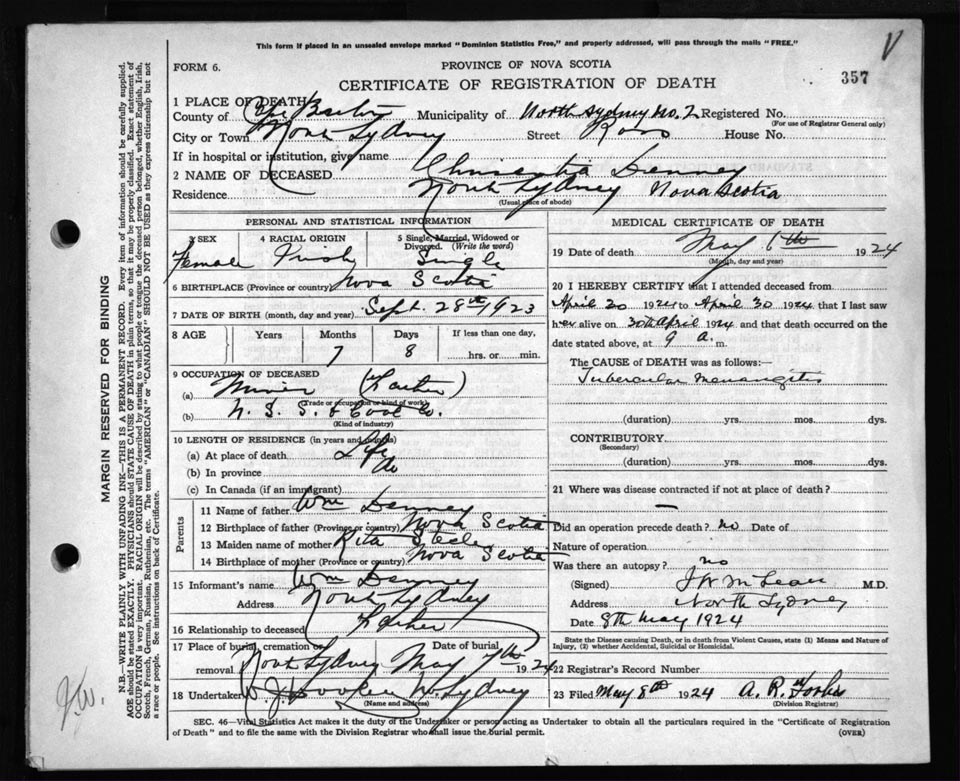 This form if placed in an unsealed envelope marked "Dominion Statistics Free," and properly addressed, will pass through the mails "FREE."
V
FORM 6.
PROVINCE OF NOVA SCOTIA
CERTIFICATE OF REGISTRATION OF DEATH
357
1 PLACE OF DEATH
County of Cape Breton Municipality of North Sydney No. 2 Registered No.
(For use of Registrar General only)
City or Town North Sydney Street Ross House No.
If in hospital or institution, give name
2 NAME OF DECEASED Denney
Residence North Sydney Nova Scotia
(Usual place of abode)
PERSONAL AND STATISTICAL INFORMATION
3 SEX 4 RACIAL ORIGIN 5 Single, Married, Widowed or Divorced. (Write the word)
Female Irish Single
6 BIRTHPLACE (Province or country) Nova Scotia
7 DATE OF BIRTH (month, day and year) Sept. 28th 1923
8 AGE Years Months Days If less than one day,
7 8 hrs. or min.
9 OCCUPATION OF DECEASED
(a) Miner (Father)
(Trade or occupation or kind of work)
(b) N. S. S. & Coal Co.
(Kind of industry)
10 LENGTH OF RESIDENCE (in years and months)
(a) At place of death Life
(b) In province do
(c) In Canada (if an immigrant)
Parents
11 Name of father Wm Denney
12 Birthplace of father (Province or country) Nova Scotia
13 Maiden name of mother Rita Steele
14 Birthplace of mother (Province or country) Nova Scotia
15 Informant's name Wm Denney
Address North Sydney
16 Relationship to deceased Father
17 Place of burial, cremation or removal Date of burial
North Sydney May 7th 1924
18 Undertaker N. Sydney
(Name and address)
MEDICAL CERTIFICATE OF DEATH
19 Date of death May 6th 1924
(Month, day and year)
20 I HEREBY CERTIFY that I attended deceased from
April 20 1924 to April 30 1924 that I last saw
her alive on 30th April 1924 and that death occurred on the
date stated above, at 9 a. m.
The CAUSE of DEATH was as follows:—
Tubercular Meningitis
(duration) yrs. mos. dys.
CONTRIBUTORY
(Secondary)
(duration) yrs. mos. dys.
21 Where was disease contracted if not at place of death?
—
Did an operation precede death? no Date of
Nature of operation
Was there an autopsy? no
(Signed) J W McLean M.D.
Address North Sydney
Date 8th May 1924
State the Disease causing Death, or in death from Violent Causes, state (1) Means and Nature of Injury, (2) whether Accidental, Suicidal or Homicidal.
22 Registrar's Record Number
23 Filed May 8th 1924 A. R.
(Division Registrar)
SEC. 46—Vital Statistics Act makes it the duty of the Undertaker or person acting as Undertaker to obtain all the particulars required in the "Certificate of Registration
of Death" and to file the same with the Division Registrar who shall issue the burial permit.
(OVER)
MARGIN RESERVED FOR BINDING
N.B.—WRITE PLAINLY WITH UNFADING INK—THIS IS A PERMANENT RECORD. Every item of information should be carefully supplied.
AGE should be stated EXACTLY. PHYSICIANS should STATE CAUSE OF DEATH in plain terms, so that it may be properly classified. Exact statement of
OCCUPATION is very important. RACIAL ORIGIN will be described by stating to what people or tongue the deceased person belonged, whether English, Irish,
Scotch, French, German, Russian, Ruthenian, etc. The terms "AMERICAN" or "CANADIAN" SHOULD NOT BE USED as they express citizenship but not
a race or people. See instructions on back of Certificate.
J.W.